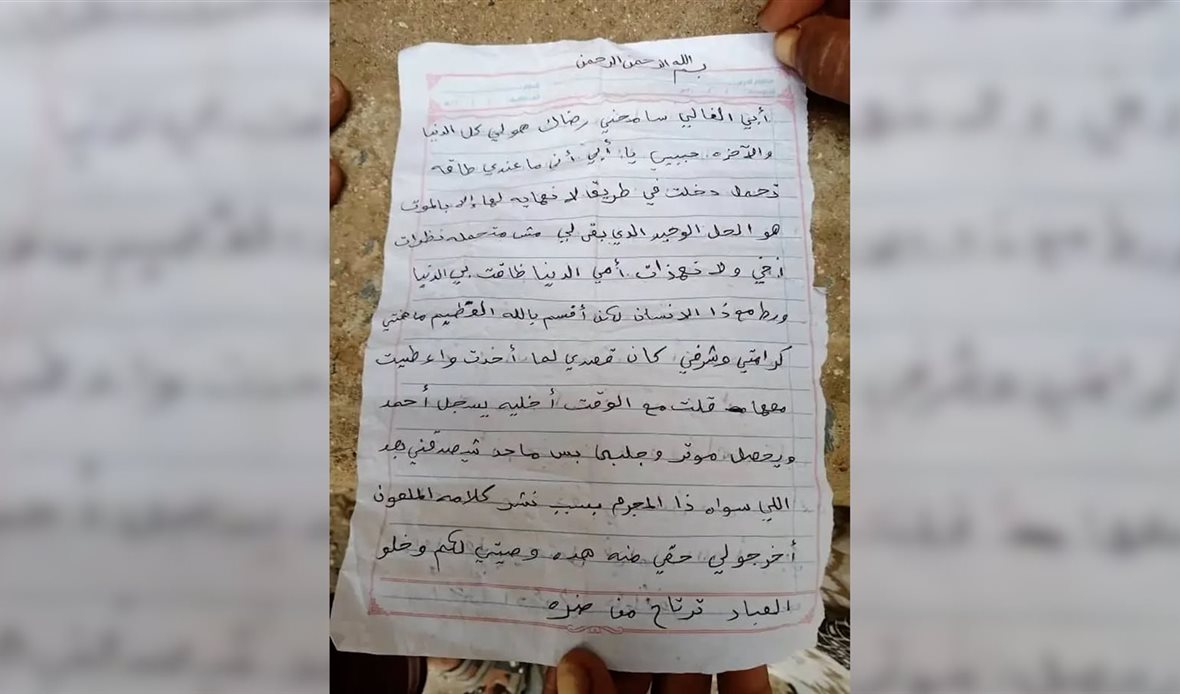 بسم الله الرحمن الرحمن
أبي الغالي سامحني رضاك هو لي كل الدنيا
والآخره حبيبي يا أبي أنى ما عندي طاقه
تحمل دخلت في طريق لا نهايه لها إلا بالموت
هو الحل الوحيد الذي بقى لي مش متحمله نظرات
أخي ولا نهدات أمي الدنيا ظاقت بي الدنيا
مع ذا الانسان لكن أقسم بالله العظيم ما همتي
كرامتي وشرفي كان قصدي لما أخدت واعطيت
معهامه قلت مع الوقت أخليه يسجل أحمد
ويحصل موتر وجلبها بس ماحد شيصدقني بعد
اللي سواه ذا المجرم بسبب نشر كلامه الملعون
أخرجولي حقي منه هده وصيتي لكم وخلو
العباد ترتاح من ضره